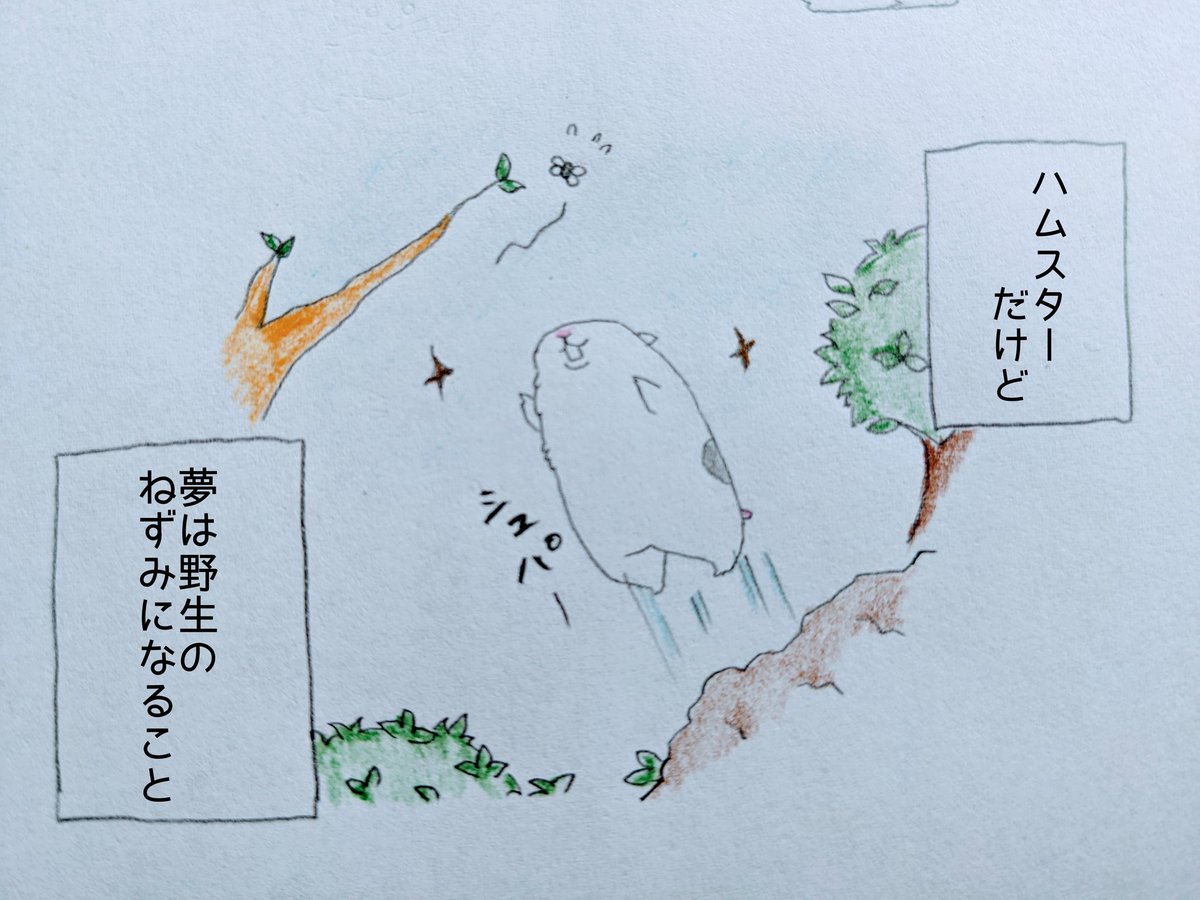 ハムスター
だけど
シュパ
夢は野生の
ねずみになること